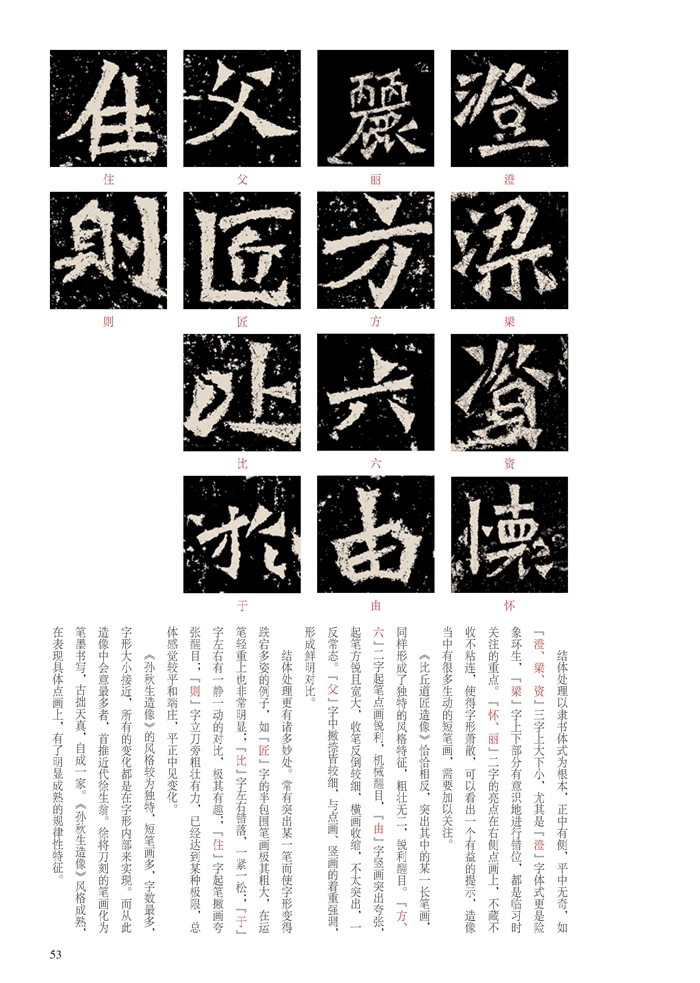 澄
梁
资
怀
丽
方
六
由
父
匠
比
于
住
则
结体处理以隶书体式为根本，正中有侧，平中无奇，如
『澄、梁、资』三字上大下小，尤其是『澄』字体式更是险
象环生，『梁』字上下部分有意识地进行错位，都是临习时
关注的重点。『怀、丽』二字的亮点在右侧点画上，不藏不
收不粘连，使得字形萧散，可以看出一个有益的提示，造像
当中有很多生动的短笔画，需要加以关注。
《比丘道匠造像》恰恰相反，突出其中的某一长笔画，
同样形成了独特的风格特征，粗壮无二，锐利醒目。『方、
六』二字起笔点画锐利，机械醒目，『由』字竖画突出夸张，
起笔方锐且宽大，收笔反倒较细，横画收缩，不太突出，一
反常态。『父』字中撇捺皆较细，与点画、竖画的着重强调，
形成鲜明对比。
结体处理更有诸多妙处。常有突出某一笔而使字形变得
跌宕多姿的例子，如『匠』字的半包围笔画极其粗大，在运
笔轻重上也非常明显；『比』字左右错落，一紧一松；『于』
字左右有一静一动的对比，极其有趣；『住』字起笔撇画夸
张醒目；『则』字立刀旁粗壮有力，已经达到某种极限，总
体感觉较平和端庄，平正中见变化。
《孙秋生造像》的风格较为独特，短笔画多，字数最多，
字形大小接近，所有的变化都是在字形内部来实现。而从此
造像中会意最多者，首推近代徐生翁。徐将刀刻的笔画化为
笔墨书写，古拙天真，自成一家。《孙秋生造像》风格成熟，
在表现具体点画上，有了明显成熟的规律性特征。
53